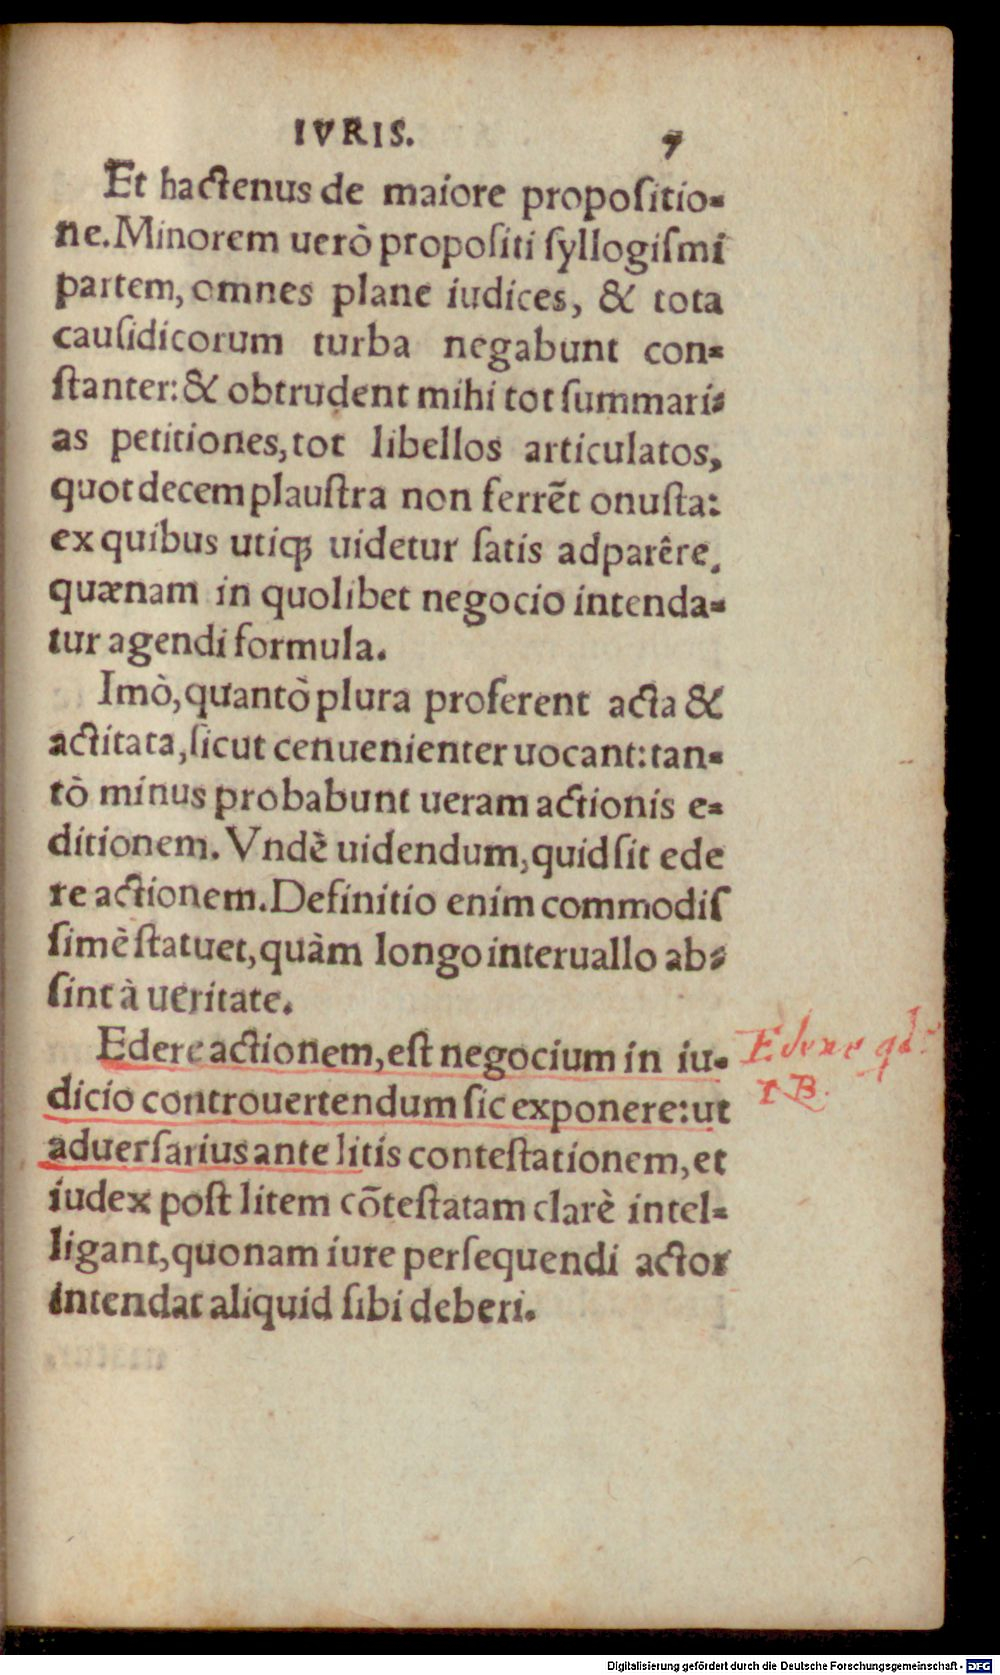 IVRIS. 7
Et hactenus de maiore propositio-
ne. Minorem uerò propositi syllogismi
partem, omnes plane iudices, & tota
causidicorum turba negabunt con-
stanter: & obtrudent mihi tot summari-
as petitiones, tot libellos articulatos,
quot decem plaustra non ferrēt onusta:
ex quibus utiq; uidetur satis adparêre,
quænam in quolibet negocio intenda-
tur agendi formula.
Imò, quantò plura proferent acta &
actitata, sicut cenuenienter uocant: tan-
tò minus probabunt ueram actionis e-
ditionem. Vndè uidendum, quid sit ede
re actionem. Definitio enim commodis
simè statuet, quàm longo interuallo ab-
sint à ueritate.
Edere actionem, est negocium in iu-
dicio controuertendum sic exponere: ut
aduersarius ante litis contestationem, et
iudex post litem cōtestatam clarè intel-
ligant, quonam iure persequendi actor
intendat aliquid sibi deberi.
Edere
Digitalisierung gefördert durch die Deutsche Forschungsgemeinschaft - DFG